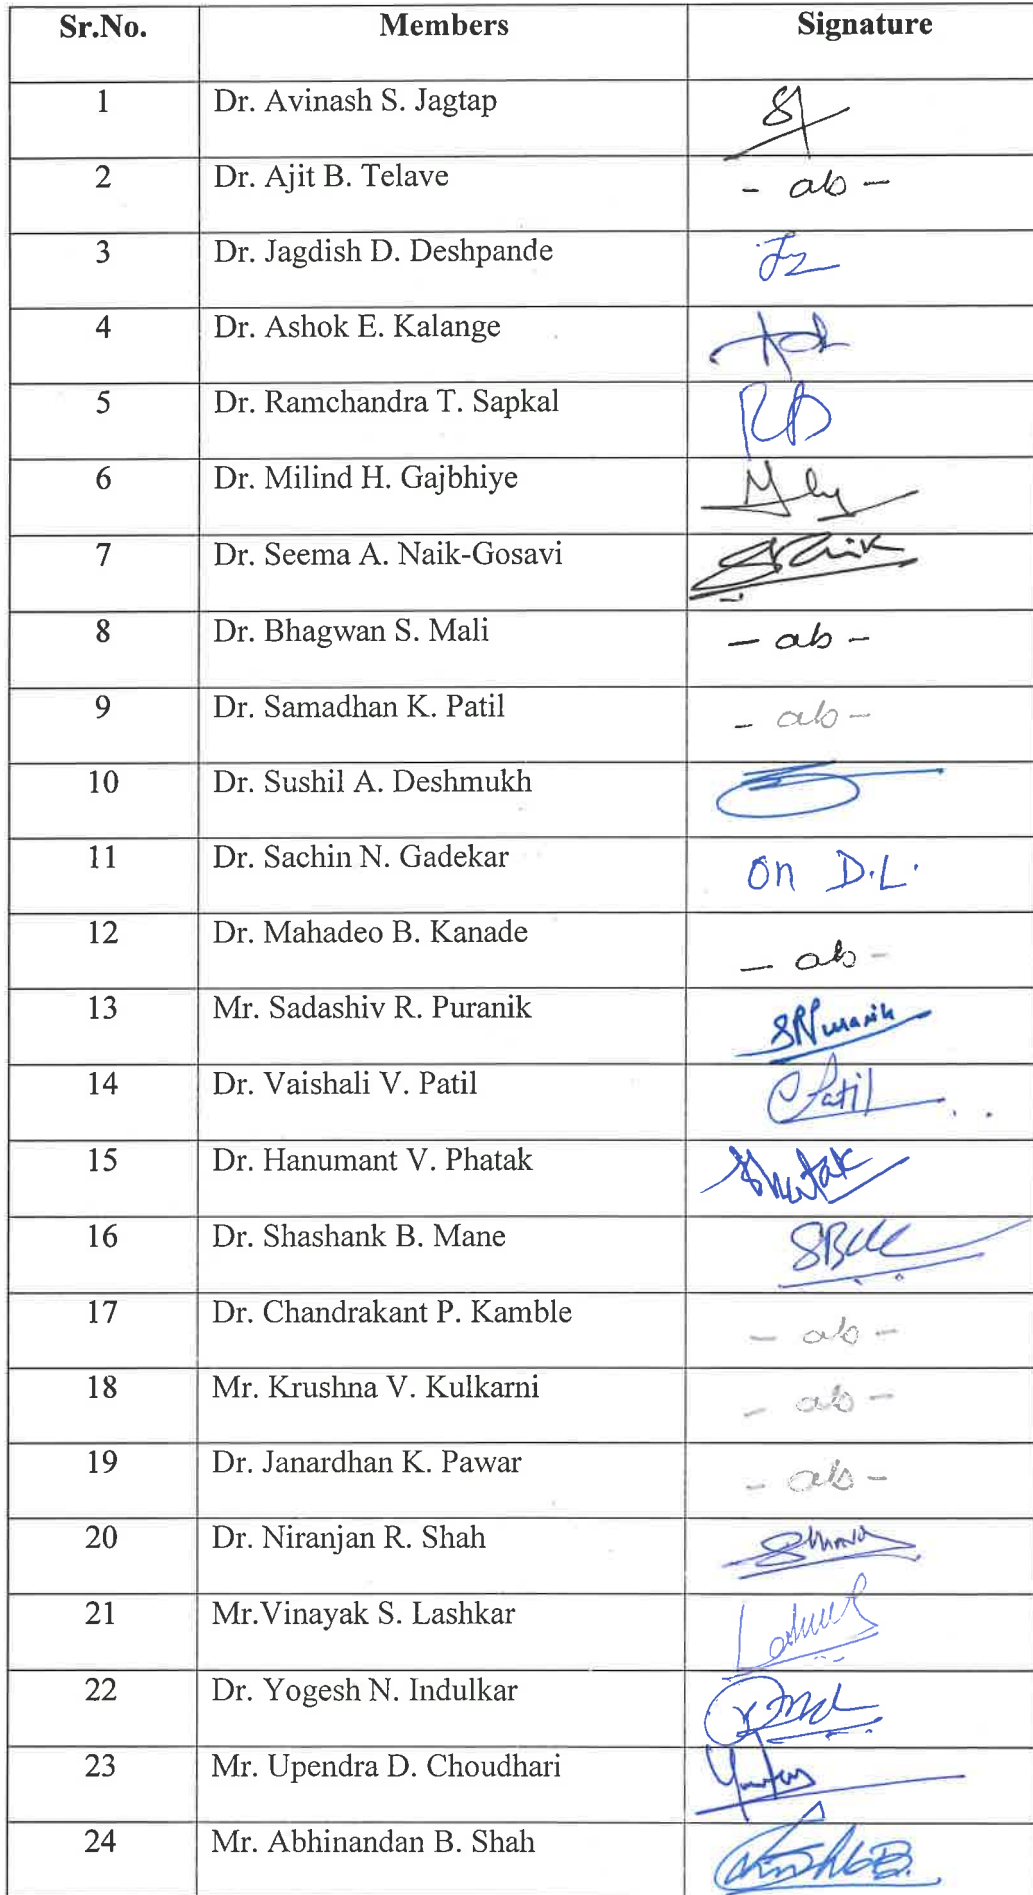 Sr.No. Members Signature
1 Dr. Avinash S. Jagtap
2 Dr. Ajit B. Telave - ab -
3 Dr. Jagdish D. Deshpande
4 Dr. Ashok E. Kalange
5 Dr. Ramchandra T. Sapkal
6 Dr. Milind H. Gajbhiye
7 Dr. Seema A. Naik-Gosavi
8 Dr. Bhagwan S. Mali - ab -
9 Dr. Samadhan K. Patil - ab -
10 Dr. Sushil A. Deshmukh
11 Dr. Sachin N. Gadekar on D.L.
12 Dr. Mahadeo B. Kanade - ab -
13 Mr. Sadashiv R. Puranik SRPuranik
14 Dr. Vaishali V. Patil Patil
15 Dr. Hanumant V. Phatak
16 Dr. Shashank B. Mane
17 Dr. Chandrakant P. Kamble - ab -
18 Mr. Krushna V. Kulkarni - ab -
19 Dr. Janardhan K. Pawar - ab -
20 Dr. Niranjan R. Shah
21 Mr.Vinayak S. Lashkar
22 Dr. Yogesh N. Indulkar
23 Mr. Upendra D. Choudhari
24 Mr. Abhinandan B. Shah